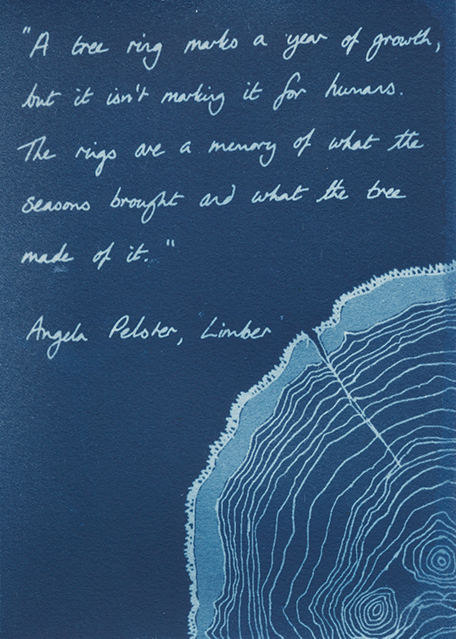 "A tree ring marks a year of growth,
but it isn't marking it for humans.
The rings are a memory of what the
seasons brought and what the tree
made of it."
Angela Pelster, Limber